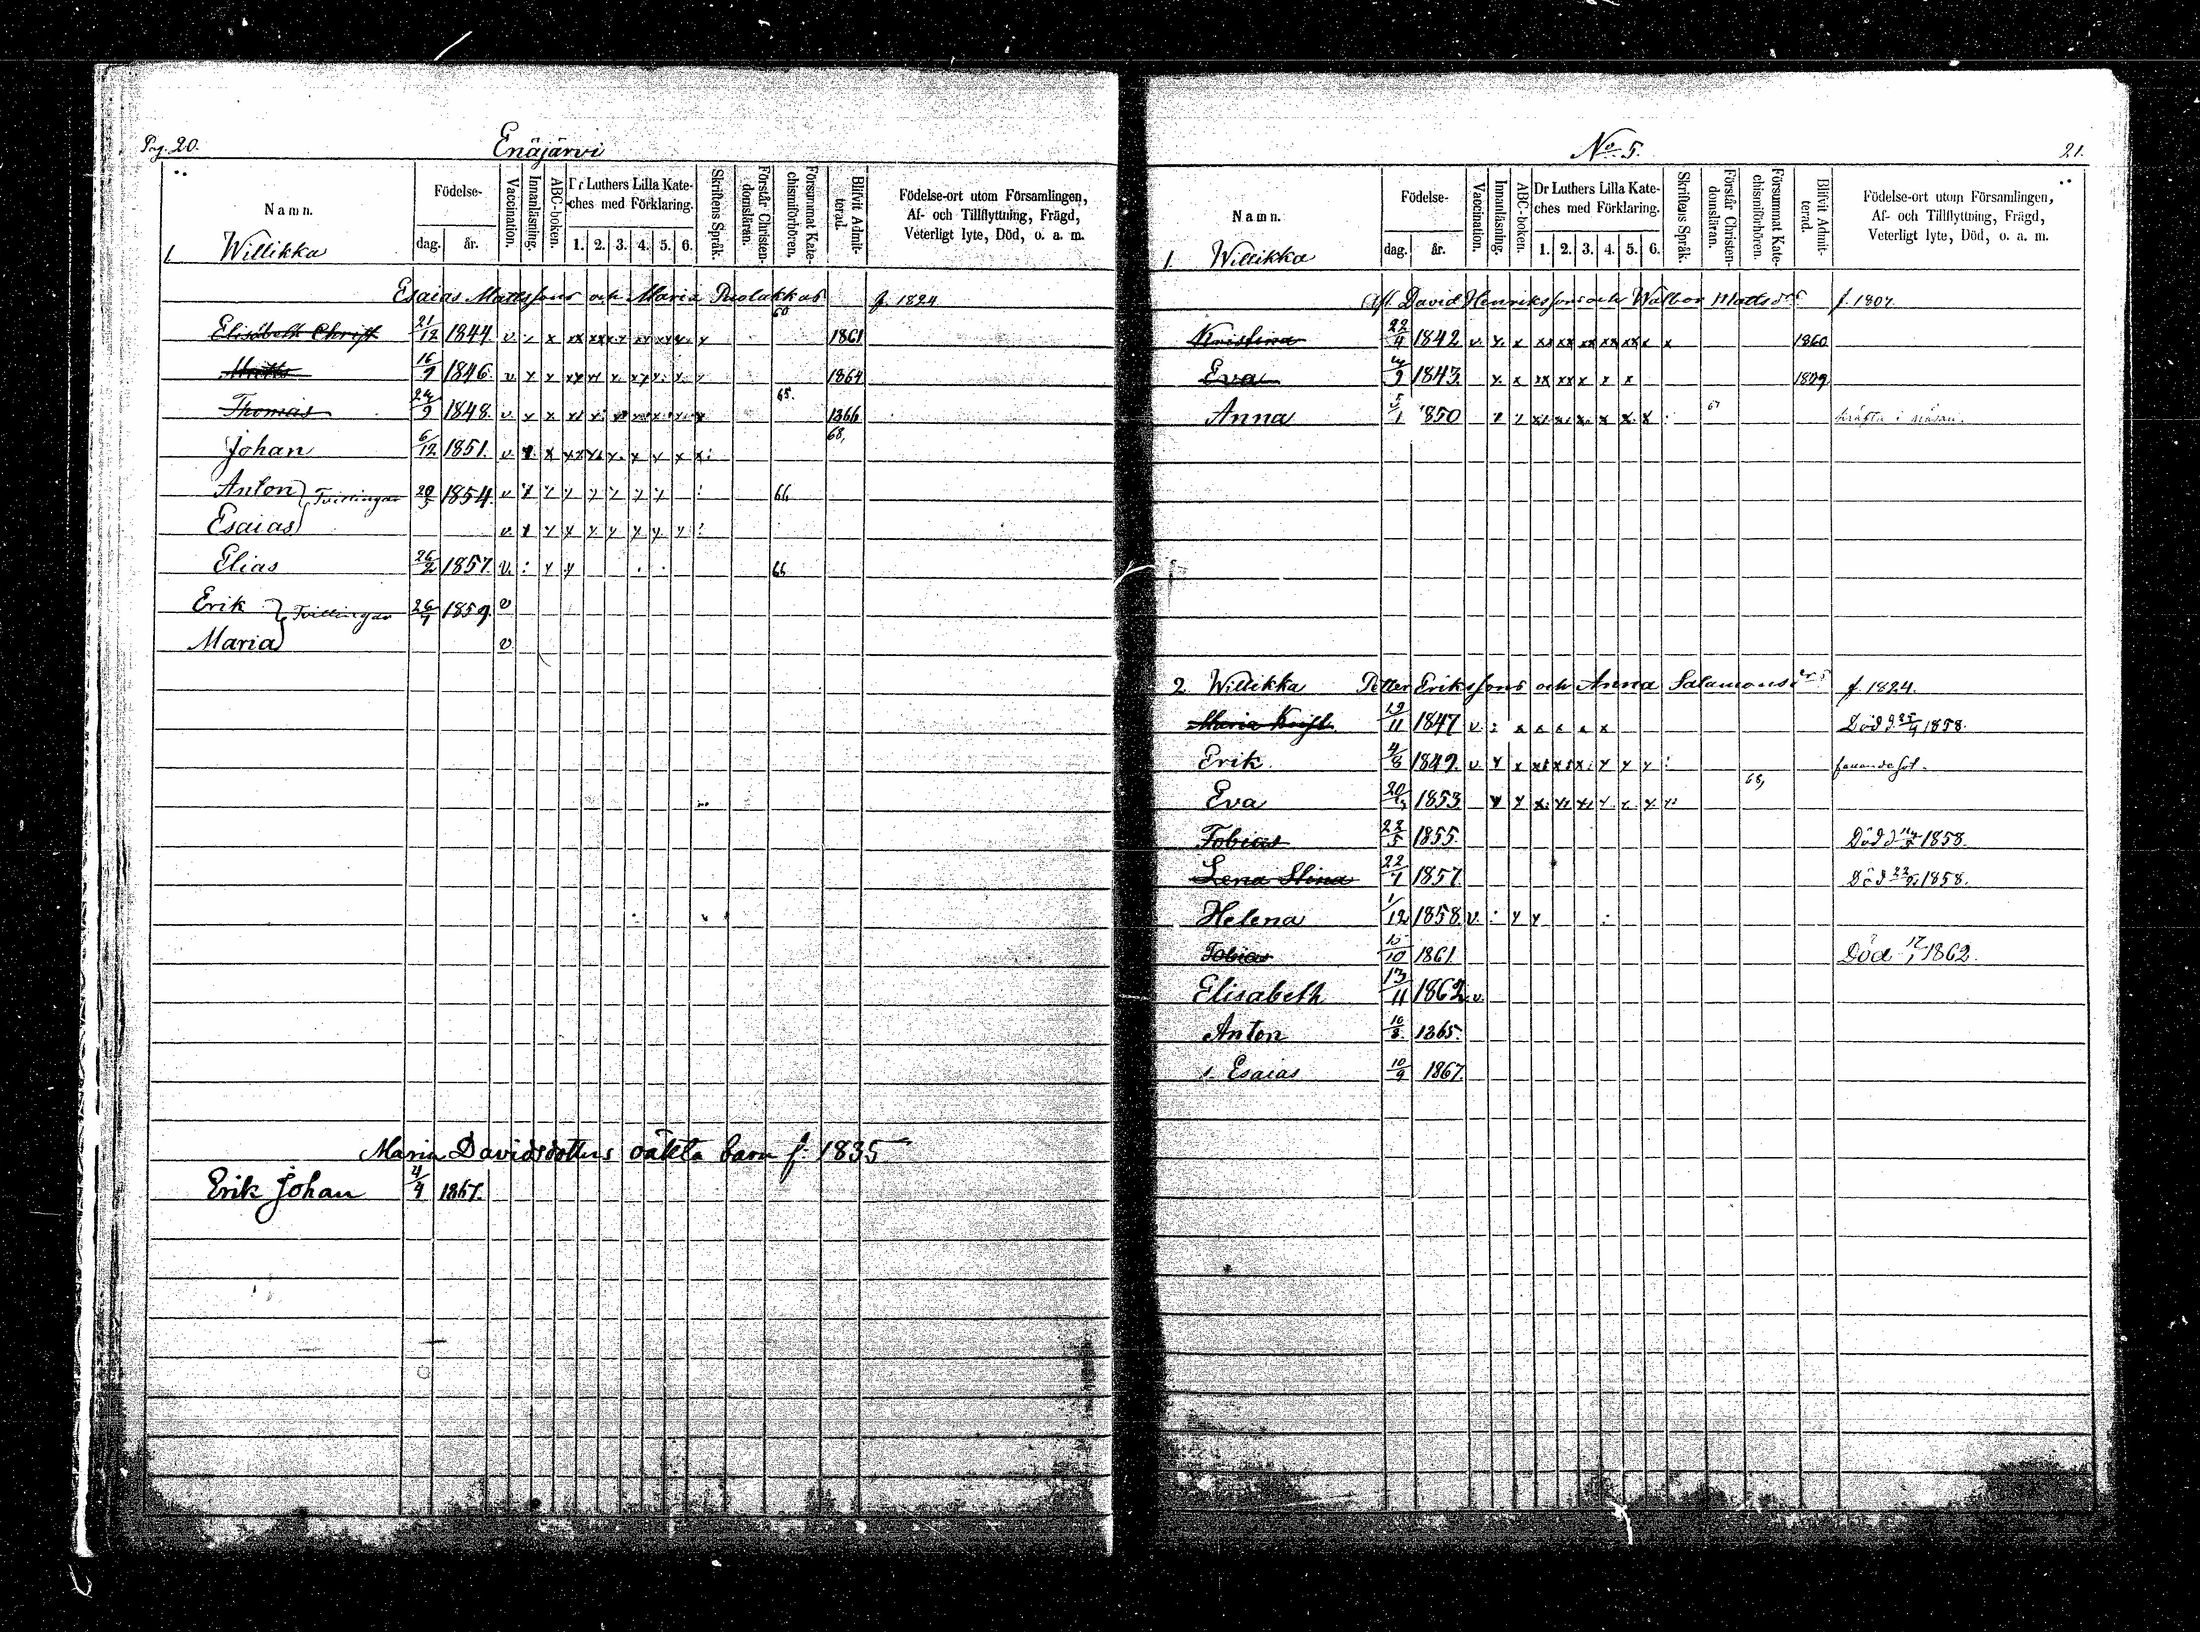 Pag. 20.
Enäjärvi
Namn.
Födelse-
dag.
år.
Vaccination.
Innanläsning.
ABC-boken.
Dr Luthers Lilla Kate-
ches med Förklaring.
1. 2. 3. 4. 5. 6.
Skriftens Språk.
Förstår Christen-
domsläran.
Försummat Kate-
chismiförhören.
Blifvit Admit-
terad.
Födelse-ort utom Församlingen,
Af- och Tillflyttning, Frägd,
Veterligt lyte, Död, o. a. m.
1. Willikka
Esaias Mattssons och Maria Puolakkas f. 1824
60
Elisabeth Christ 21/12 1844 v. x x xx xx x x xx xx x. x 1861
16/9 1846 v x x xx x x. xx x. x. x 1864
65.
Thomas 24/9 1848. v. x x x x x x x x x 1866
68,
Johan 6/12 1851. v. x x x x x x. x x x x:
Anton Tvillingar 1854 v x x x x x x x : 66
Esaias v. x x x x x x x x :
Elias 26/2 1857. v. : x x . . 66
Erik Tvillingar 1859. v
Maria v
Maria Davidsdotters oäkta barn f. 1835
Erik Johan 4/4 1867.
No 5.
21.
Namn.
Födelse-
dag.
år.
Vaccination.
Innanläsning.
ABC-boken.
Dr Luthers Lilla Kate-
ches med Förklaring.
1. 2. 3. 4. 5. 6.
Skriftens Språk.
Förstår Christen-
domsläran.
Försummat Kate-
chismiförhören.
Blifvit Admit-
terad.
Födelse-ort utom Församlingen,
Af- och Tillflyttning, Frägd,
Veterligt lyte, Död, o. a. m.
1. Willikka
Afl. David Henrikssons och Walbor Mattsdrs f. 1807.
Kristina 22/4 1842 v. x. x xx xx xx xx xx x x 1860
Eva 1843. x. x xx xx x x x
Anna 5/1 1850 x x x x. x. x x. x : 67
2 Willikka Petter Erikssons och Anna Salamonsdrs f. 1824.
Maria Krist. 19/11 1847 v. : x x x x x Död d 25/4 1858.
Erik 4/8 1849. v x x xx xx x: x x x :
68,
Eva 1853 x x x. x x x x. x x
Tobias 22/5 1855. Död d 1858.
Lena Stina 22/7 1857. Död 1858.
Helena 1/12 1858. v. : x x :
Tobias 1861 Död 17/1 1862.
Elisabeth 13/11 1862. v.
Anton 10/8. 1865.
s. Esaias 10/9 1867.